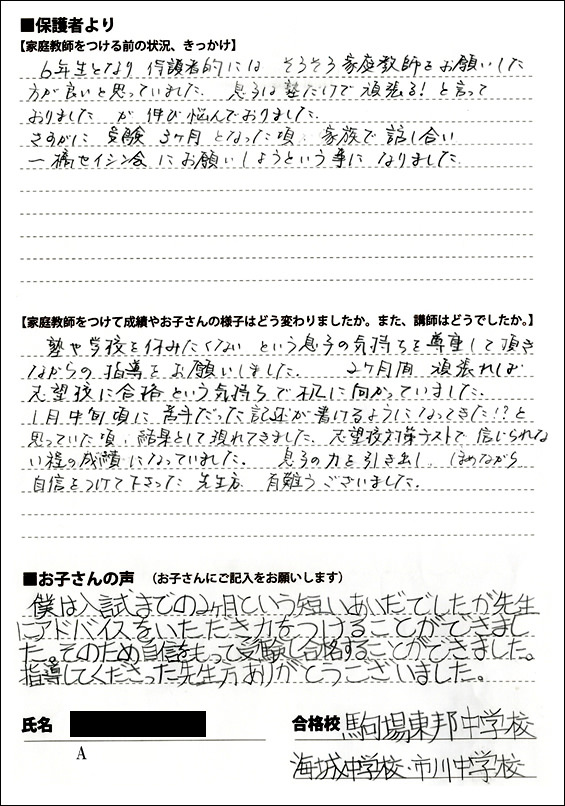 ■保護者より
【家庭教師をつける前の状況、きっかけ】
6年生となり 保護者的には そろそろ家庭教師をお願いした
方が良いと思っていました. 息子は塾だけで頑張る! と言って
おりました が 伸び悩んでおりました.
さすがに 受験 3ヶ月 となった頃. 家族で 話し合い
一橋セイシン会 にお願いしようという事に なりました.
【家庭教師をつけて成績やお子さんの様子はどう変わりましたか。また、講師はどうでしたか。】
塾や学校を休みたくない という息子の気持ちを尊重して頂き
ながらの 指導を お願いしました. 2ヶ月間 頑張れば
志望校に合格 という気持ちで 机に向かっていました.
1月中旬頃に 苦手だった 記述が 書けるようになってきた!? と
思っていた頃. 結果として現れてきました. 志望校対策テストで 信じられな
い程の成績 になっていました. 息子の力を引き出し. ほめながら
自信をつけて下さった 先生方 有難うございました.
■お子さんの声 (お子さんにご記入をお願いします)
僕は入試までの2ヶ月という短いあいだでしたが先生
にアドバイスをいただき力をつけることができまし
た。そのため自信をもって受験し合格することができました。
指導してくださった先生方ありがとうございました。
氏名
A
合格校 駒場東邦中学校
海城中学校・市川中学校